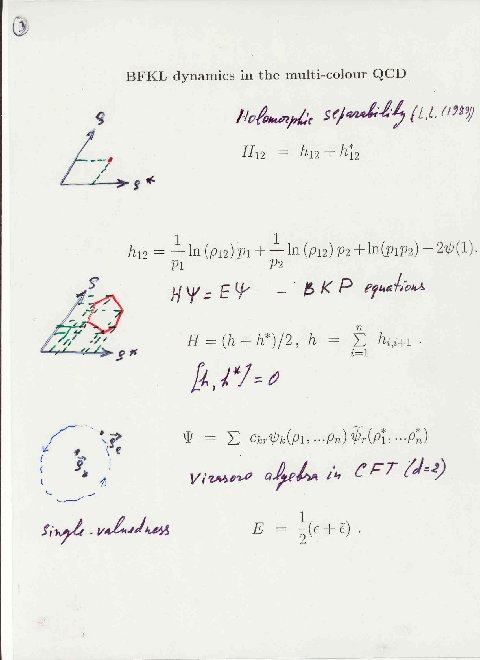 3
BFKL dynamics in the multi-colour QCD
ρ
Holomorphic separability (L.L. (1989))
H₁₂ = h₁₂ + h*₁₂
ρ*
h₁₂ = 1/p₁ ln (ρ₁₂) p₁ + 1/p₂ ln (ρ₁₂) p₂ + ln(p₁p₂) − 2ψ(1).
ρ
HΨ = EΨ – BKP equations
H = (h + h*)/2, h = Σⁿᵢ₌₁ hᵢ,ᵢ₊₁ .
ρ*
[h, h*] = 0
Ψ = Σ cₖᵣψₖ(ρ₁, ...ρₙ) ψ̃ᵣ(ρ*₁, ...ρ*ₙ)
Virasoro algebra in CFT (d=2)
single-valuedness
E = 1/2 (ϵ + ϵ̃) .